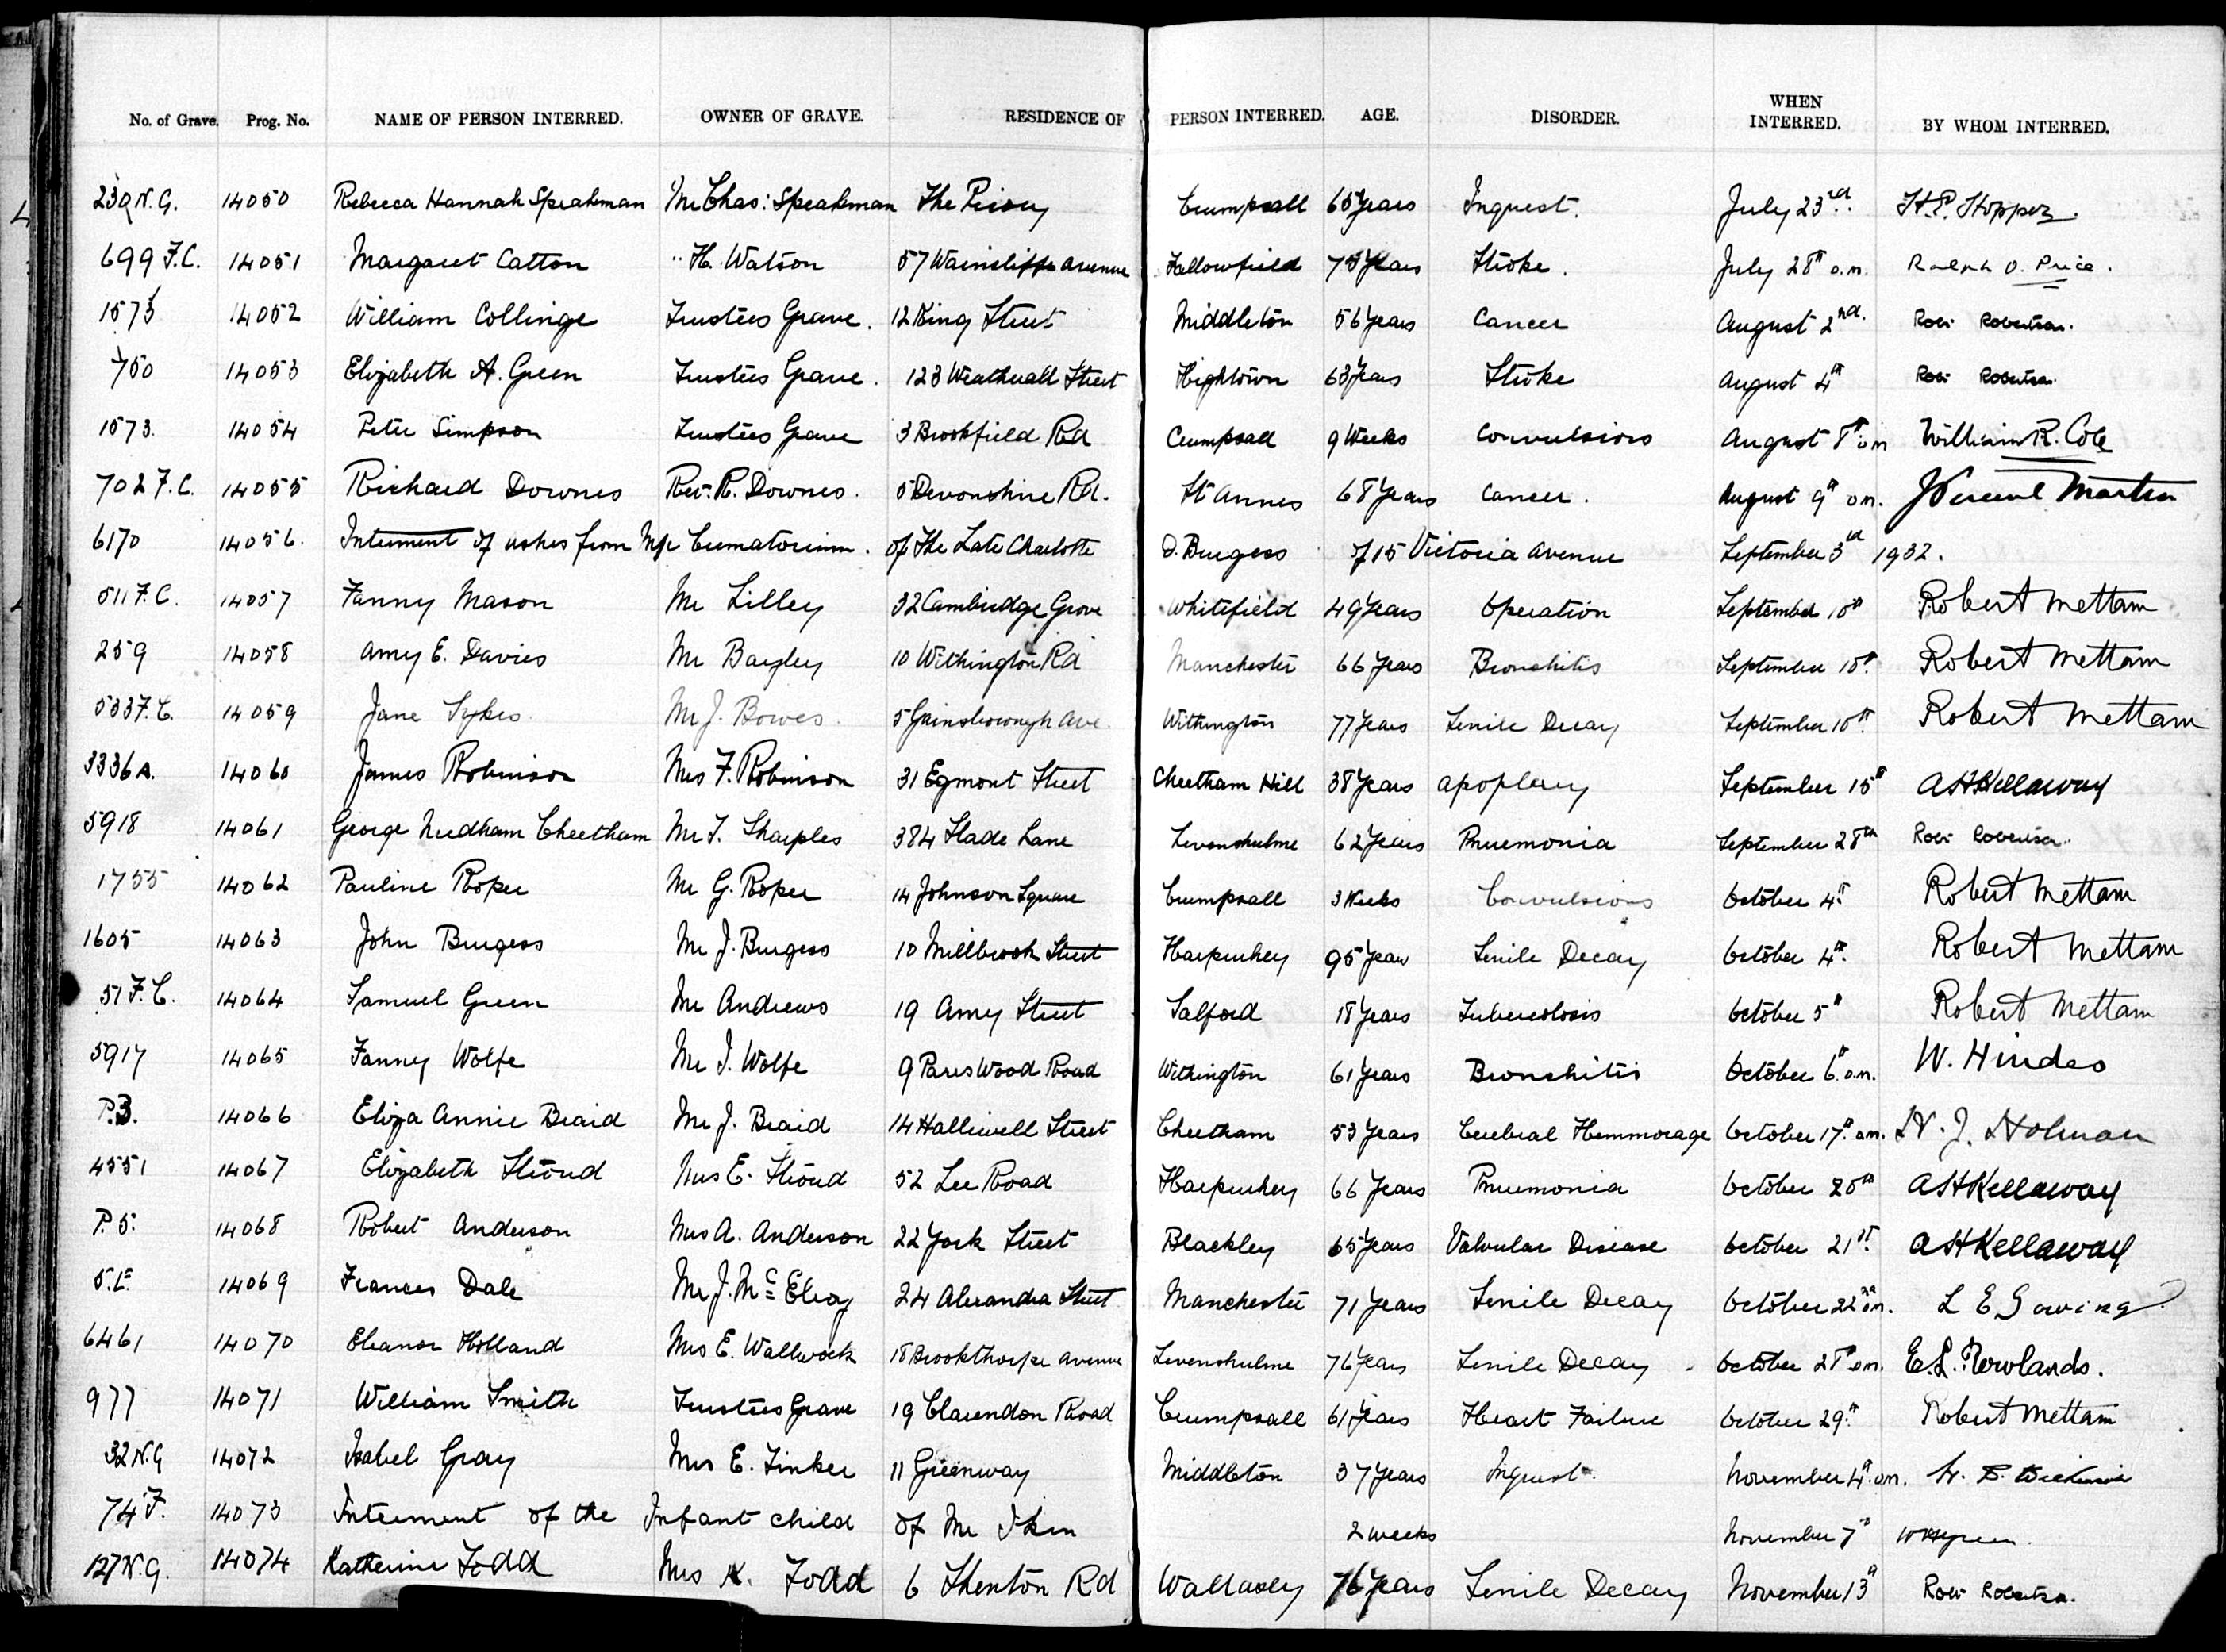 No. of Grave. Prog. No. NAME OF PERSON INTERRED. OWNER OF GRAVE. RESIDENCE OF PERSON INTERRED. AGE. DISORDER. WHEN INTERRED. BY WHOM INTERRED.
239 N.G. 14050 Rebecca Hannah Speakman Mr Chas: Speakman The Priory Crumpsall 65 Years Inquest. July 23rd. H.P. Hopper.
699 F.C. 14051 Margaret Catton " H. Watson 57 Waincliffe Avenue Fallowfield 75 Years Stroke. July 28th a.m. Ralph O. Price.
1573 14052 William Collinge Trustees Grave. 12 King Street Middleton 56 Years Cancer August 2nd. Robt Robertson.
750 14053 Elizabeth A. Green Trustees Grave. 123 Weatherall Street Hightown 63 Years Stroke August 4th Robt Robertson.
1573. 14054 Peter Simpson Trustees Grave 3 Brookfield Rd Crumpsall 9 Weeks Convulsions August 8th a.m William R. Cole
702 F.C. 14055 Richard Downes Rev. R. Downes. 5 Devonshire Rd. St Annes 68 Years Cancer. August 9th a.m. J Percival Martin
6170 14056. Interment of ashes from M/c Crematorium. of The Late Charlotte D. Burgess of 15 Victoria Avenue September 3rd 1932.
511 F.C. 14057 Fanny Mason Mr Lilley 32 Cambridge Grove Whitefield 49 Years Operation September 10th Robert Mettam
259 14058 Amy E. Davies Mr Bayley 10 Withington Rd Manchester 66 Years Bronchitis September 10th. Robert Mettam
5337 F.C. 14059 Jane Sykes Mr J. Bowes. 5 Gainsborough Ave. Withington 77 Years Senile Decay September 10th. Robert Mettam
3336 A. 14060 James Robinson Mrs F. Robinson 31 Egmont Street Cheetham Hill 38 Years Apoplexy September 15th A S H Kellaway
5918 14061 George Needham Cheetham Mr T. Sharples 384 Slade Lane Levenshulme 62 Years Pneumonia September 28th Robt Robertson.
1755 14062 Pauline Roper Mr G. Roper 14 Johnson Square Crumpsall 3 Weeks Convulsions October 4th. Robert Mettam
1605 14063 John Burgess Mr J. Burgess 10 Millbrook Street Harpurhey 95 Years Senile Decay October 4th. Robert Mettam
51 F.C. 14064 Samuel Green Mr Andrews 19 Amy Street Salford 18 Years Tuberculosis October 5th Robert Mettam
5917 14065 Fanny Wolfe Mr I. Wolfe 9 Parrs Wood Road Withington 61 Years Bronchitis October 6th. a.m. W. Hindes
P.3. 14066 Eliza Annie Braid Mr J. Braid 14 Halliwell Street Cheetham 53 Years Cerebral Hemmorage October 17th. a.m. H. J. Holman
4551 14067 Elizabeth Stroud Mrs E. Stroud 52 Lee Road Harpurhey 66 Years Pneumonia October 20th A S H Kellaway
P.5. 14068 Robert Anderson Mrs A. Anderson 22 York Street Blackley 65 Years Valvular Disease October 21st. A S H Kellaway
5.E. 14069 Frances Dale Mr J. Mc Elroy 24 Alexandra Street Manchester 71 Years Senile Decay October 22nd a.m. L E Gowing
6461 14070 Eleanor Holland Mrs E. Wallwork 18 Brookthorpe Avenue Levenshulme 76 Years Senile Decay October 28th a.m. E.L. Rowlands.
977 14071 William Smith Trustees Grave 19 Clarendon Road Crumpsall 61 Years Heart Failure October 29th. Robert Mettam
32 N.G 14072 Isabel Gray Mrs E. Tinker 11 Greenway Middleton 37 Years Inquest. November 4th. a.m.
74 F. 14073 Interment of the Infant child of Mr Ikin 2 weeks November 7th
127 N.G. 14074 Katherine Todd Mrs K. Todd 6 Shenton Rd Wallasey 76 Years Senile Decay November 13th Robt Robertson.